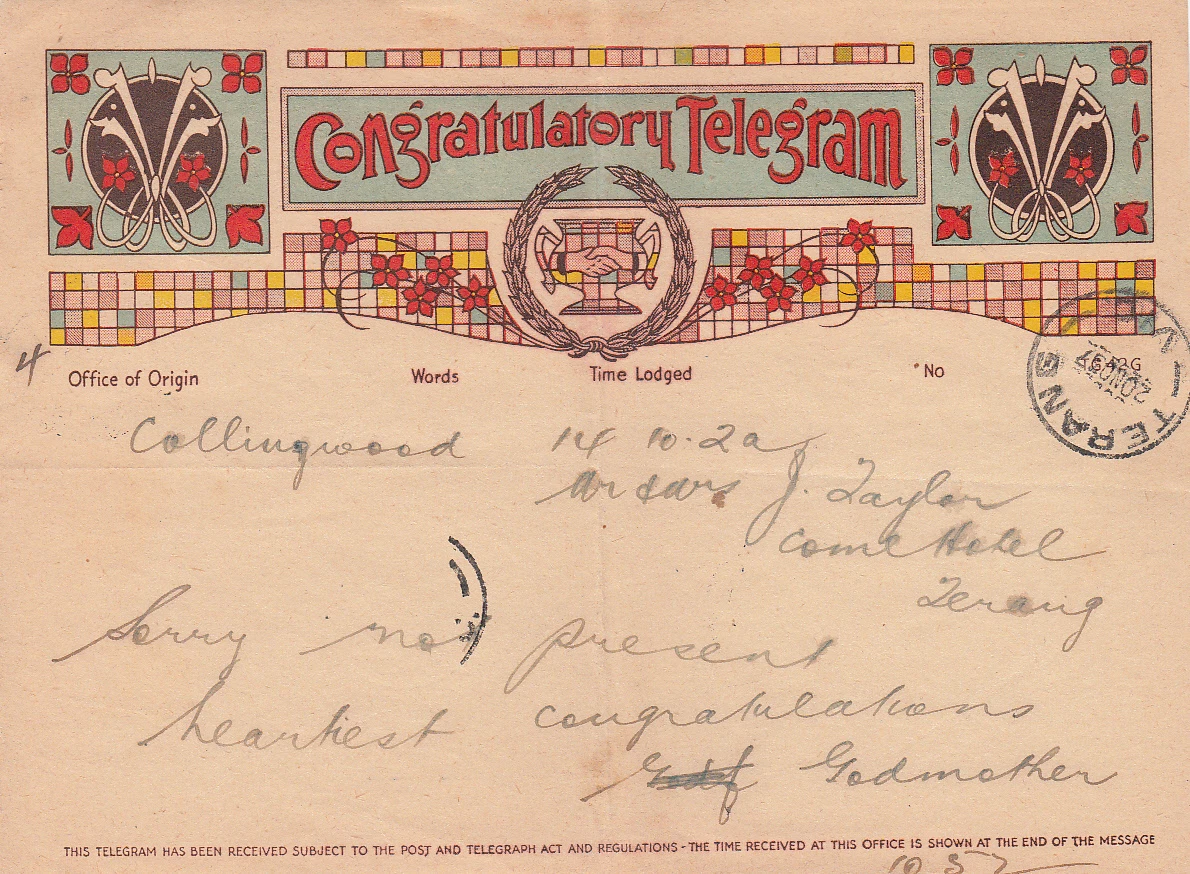 Congratulatory Telegram
4
Office of Origin Words Time Lodged No
Collingwood 14 10.2a
Mr & Mrs J. Taylor
Hotel
Terang
TERANG
Sorry not present
heartiest congratulations
Godmother
THIS TELEGRAM HAS BEEN RECEIVED SUBJECT TO THE POST AND TELEGRAPH ACT AND REGULATIONS - THE TIME RECEIVED AT THIS OFFICE IS SHOWN AT THE END OF THE MESSAGE
10 57